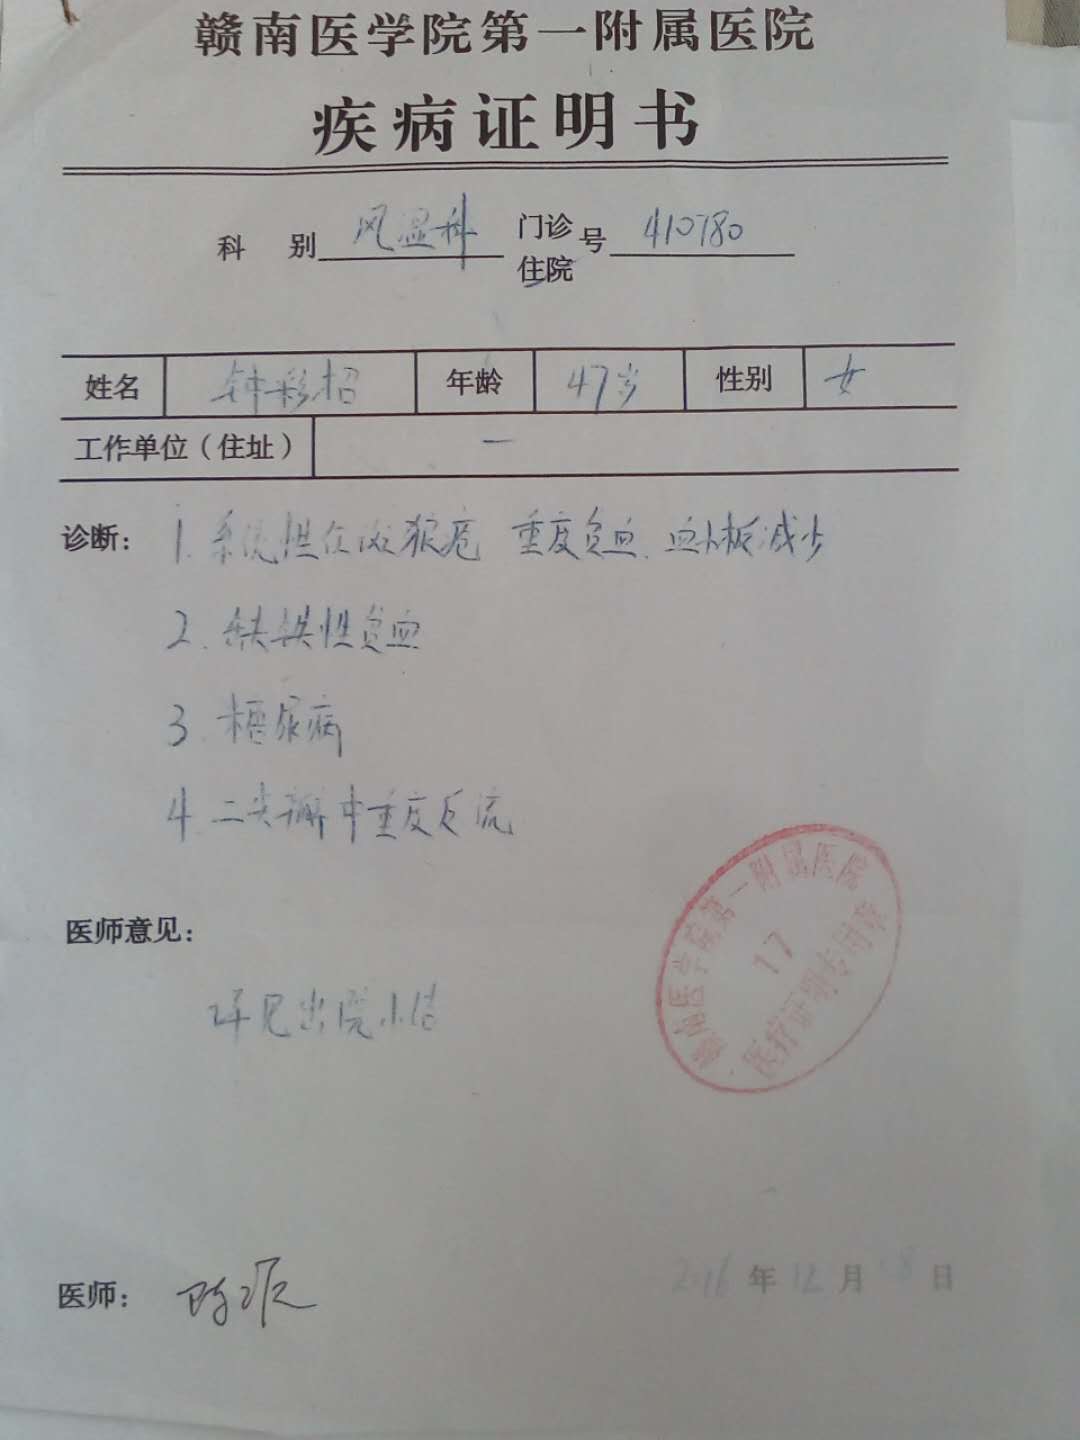 赣南医学院第一附属医院
疾病证明书
科 别 风湿科 门诊 住院 号 410780
姓名 钟彩招 年龄 47岁 性别 女
工作单位（住址） 一
诊断： 1. 系统性红斑狼疮 重度贫血、血小板减少
2. 缺铁性贫血
3. 糖尿病
4. 二尖瓣中重度反流
医师意见：
详见出院小结
赣南医学院第一附属医院
17
医疗证明专用章
医师：
2016年12月 日